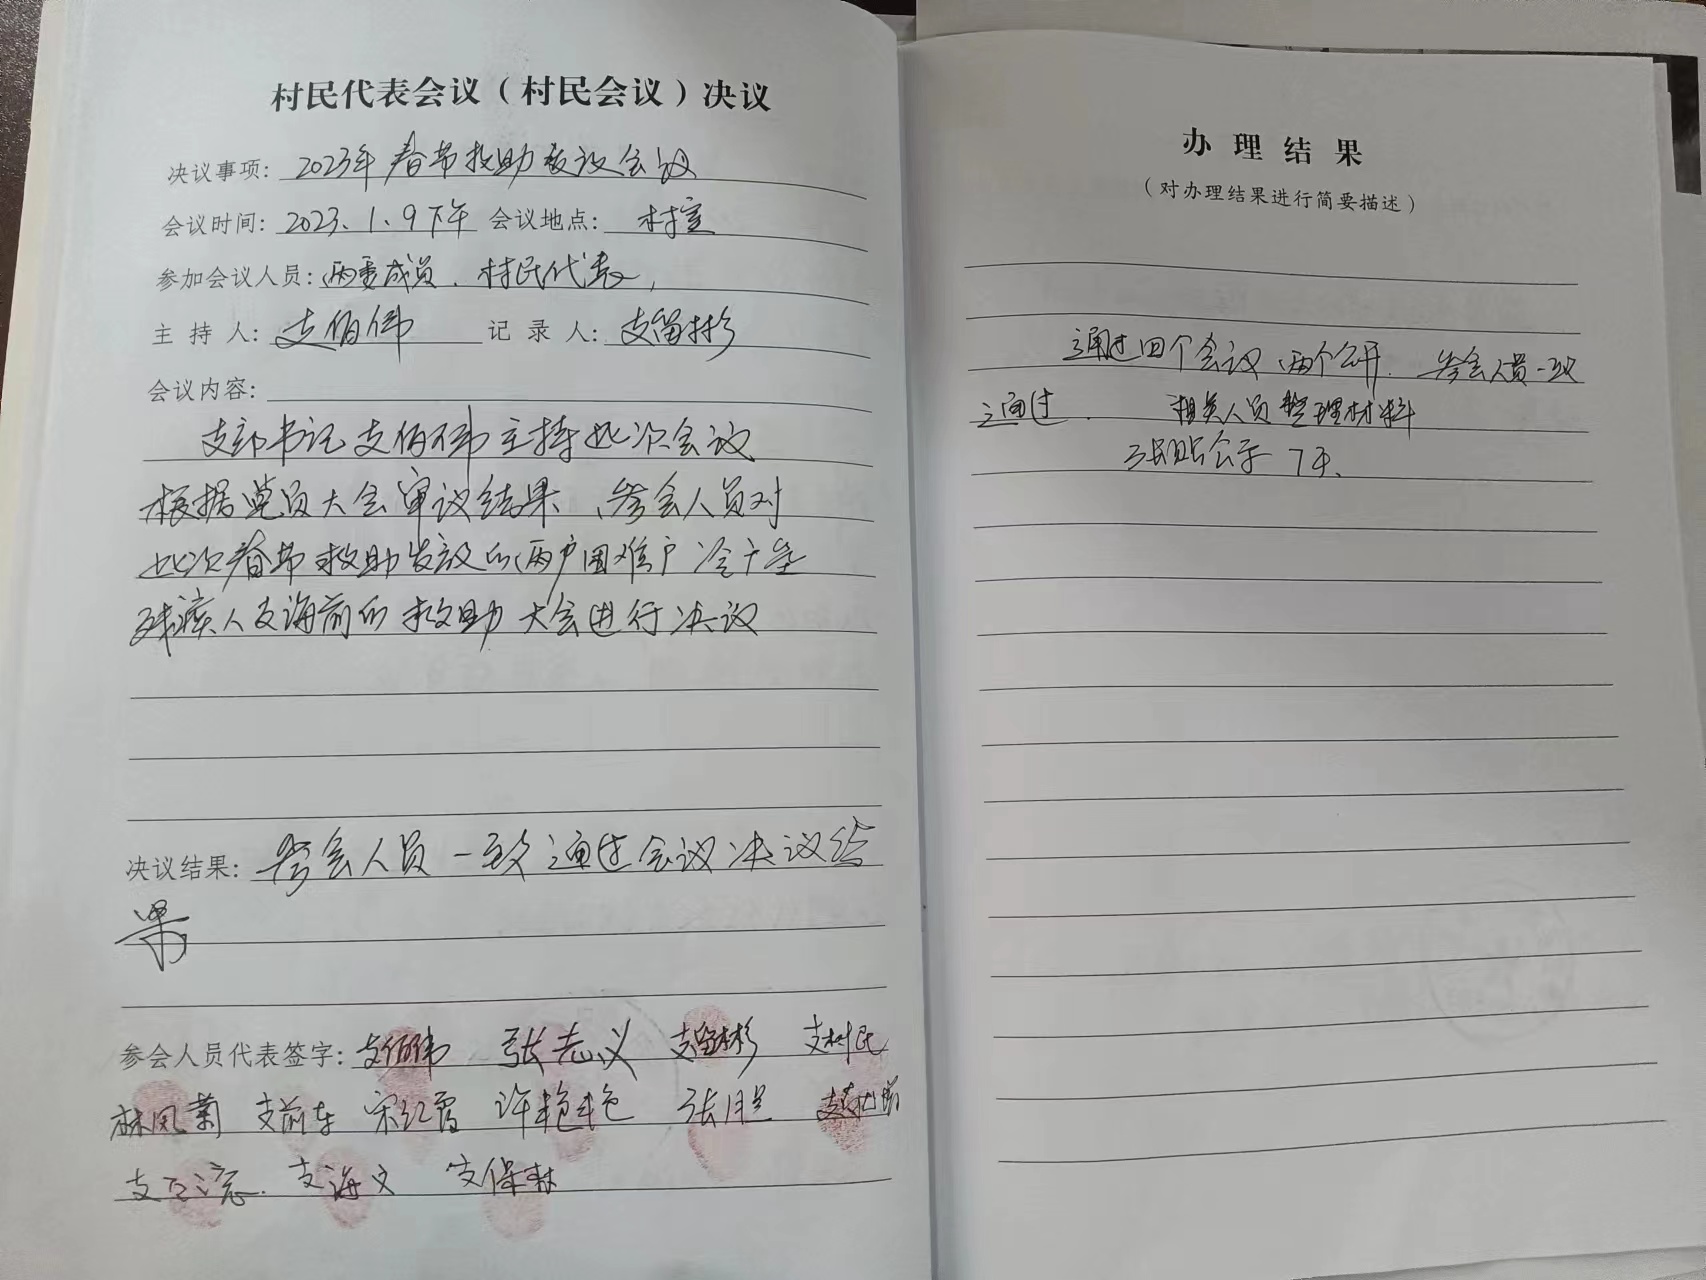 村民代表会议（村民会议）决议
决议事项：2023年春节救助决议会议
会议时间：2023、1、9下午 会议地点：村室
参加会议人员：两委成员、村民代表，
主持人：支伯伟 记录人：支留彬
会议内容：
支部书记支伯伟主持此次会议
根据党员大会审议结果、参会人员对
此次春节救助发放的两户困难户
残疾人支海前的救助大会进行决议
决议结果：参会人员一致通过会议决议结
果
参会人员代表签字：支伯伟 张志义 支留彬 支村民
林凤菊 支前车 宋红霞 许艳艳
支海义 支保林
办理结果
（对办理结果进行简要描述）
通过四个会议、两个公开、参会人员一致
通过、相关人员整理材料
张贴公示7天、